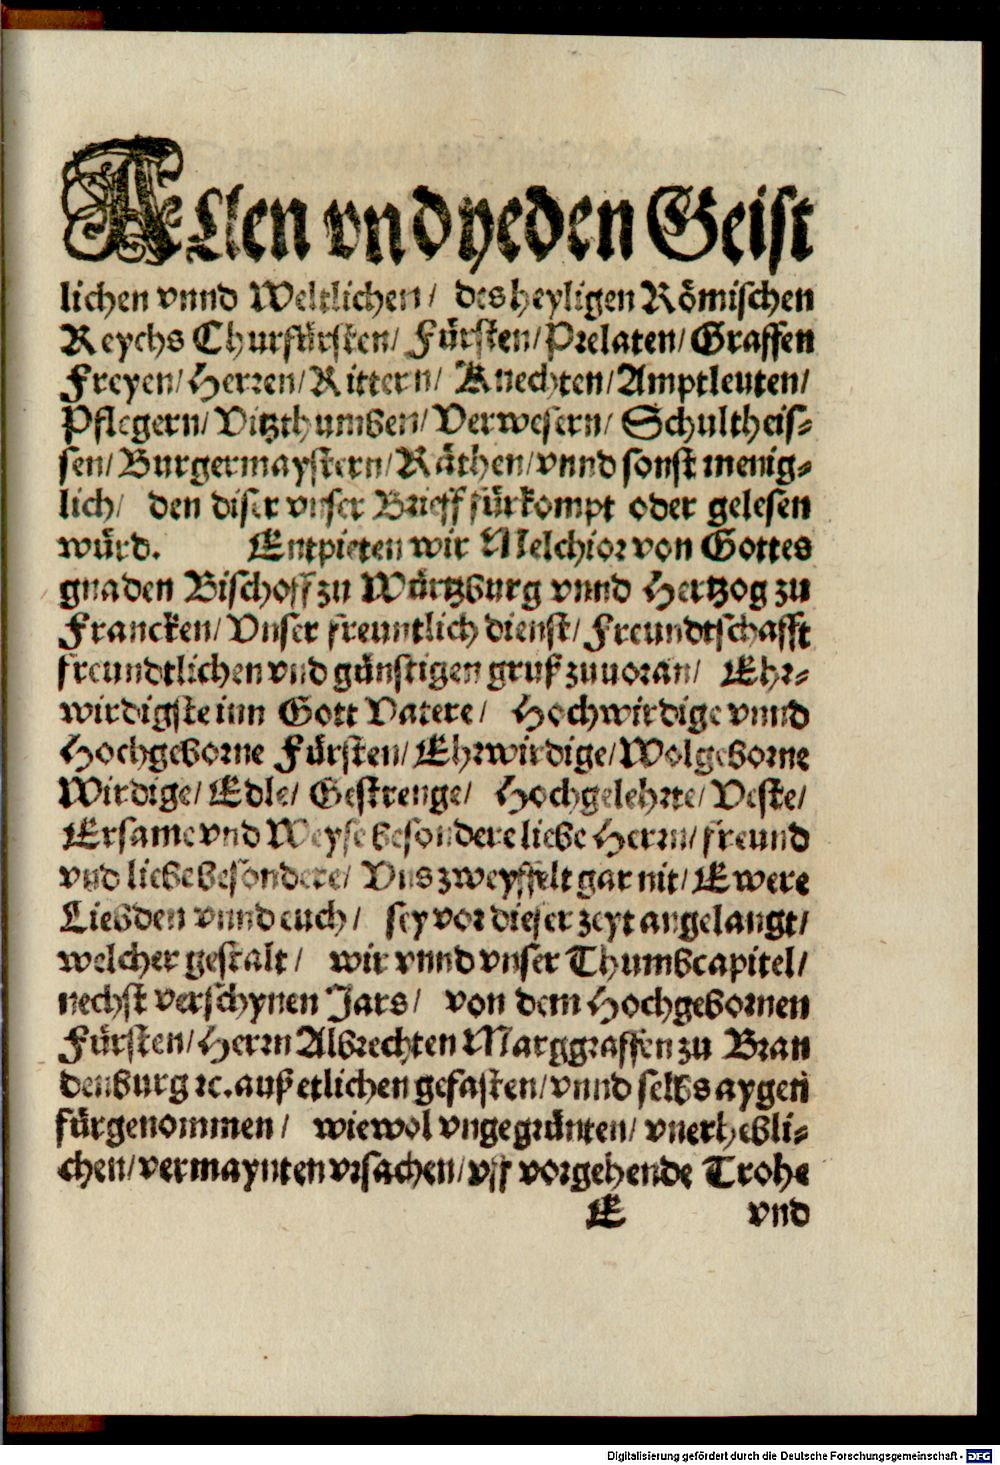 ALlen vnd yeden Geist
lichen vnnd Weltlichen/ des heyligen Römischen
Reychs Churfürsten/ Fürsten/ Prelaten/ Graffen
Freyen/ Herren/ Rittern/ Knechten/ Amptleuten/
Pflegern/ Vitzthumben/ Verwesern/ Schultheis-
sen/ Burgermaystern/ Räthen/ vnnd sonst menig-
lich/ den diser vnser Brieff fürkompt oder gelesen
würd. Entpieten wir Melchior von Gottes
gnaden Bischoff zu Würtzburg vnnd Hertzog zu
Francken/ Vnser freuntlich dienst/ Freundtschafft
freundtlichen vnd günstigen gruß zuuoran/ Ehr-
wirdigste inn Gott Vatere/ Hochwirdige vnnd
Hochgeborne Fürsten/ Ehrwirdige/ Wolgeborne
Wirdige/ Edle/ Gestrenge/ Hochgelehrte/ Veste/
Ersame vnd Weyse besondere liebe Herrn/ freund
vnd liebe besondere/ Vns zweyffelt gar nit/ Ewere
Liebden vnnd euch/ sey vor dieser zeyt angelangt/
welcher gestalt/ wir vnnd vnser Thumbcapitel/
nechst verschynen Jars/ von dem Hochgebornen
Fürsten/ Herrn Albrechten Marggraffen zu Bran
denburg ꝛc. auß etlichen gefasten/ vnnd selbs aygen
fürgenommen/ wiewol vngegrünten/ vnerhebli-
chen/ vermaynten vrsachen/ vff vorgehende Trohe
E vnd
Digitalisierung gefördert durch die Deutsche Forschungsgemeinschaft - DFG